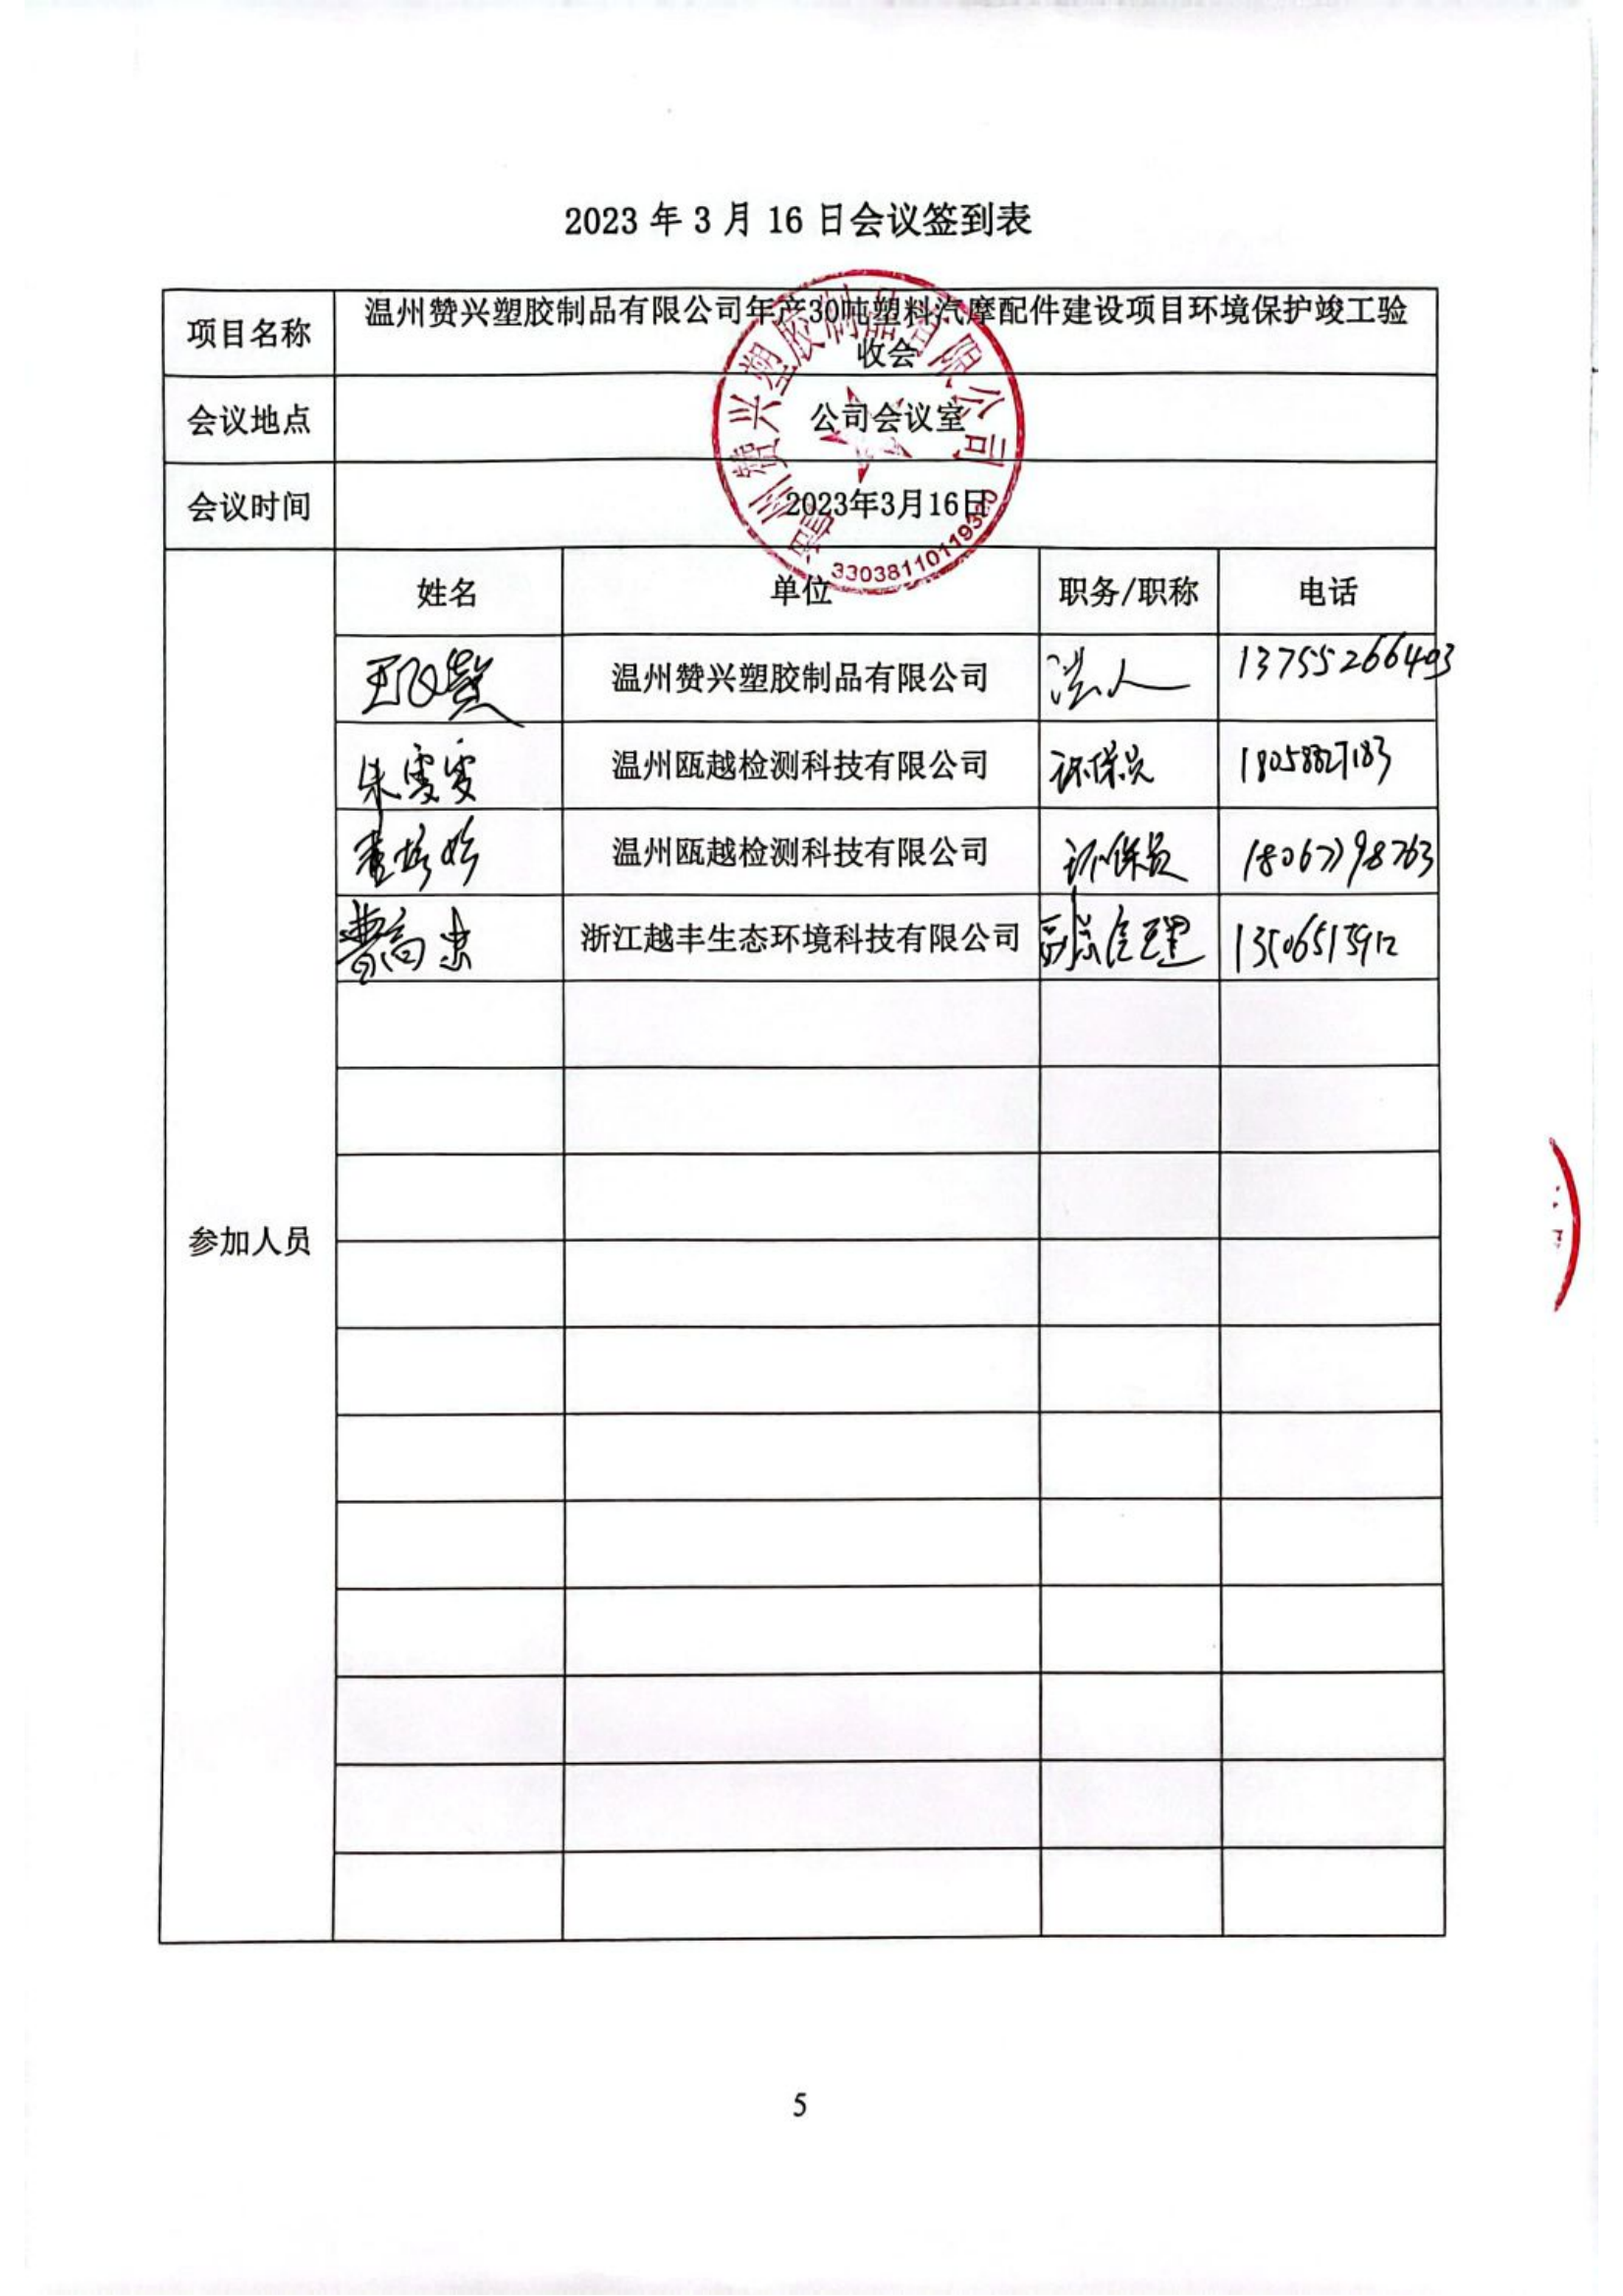 2023 年 3 月 16 日会议签到表
项目名称
温州赞兴塑胶制品有限公司年产30吨塑料汽摩配件建设项目环境保护竣工验
收会
会议地点
公司会议室
会议时间
2023年3月16日
温州赞兴塑胶制品有限公司
33038110119320
参加人员
姓名 单位 职务/职称 电话
温州赞兴塑胶制品有限公司 法人 13755266403
朱雯雯 温州瓯越检测科技有限公司 环保员
温州瓯越检测科技有限公司 环保员 18067798763
曹高忠 浙江越丰生态环境科技有限公司 副总经理
5